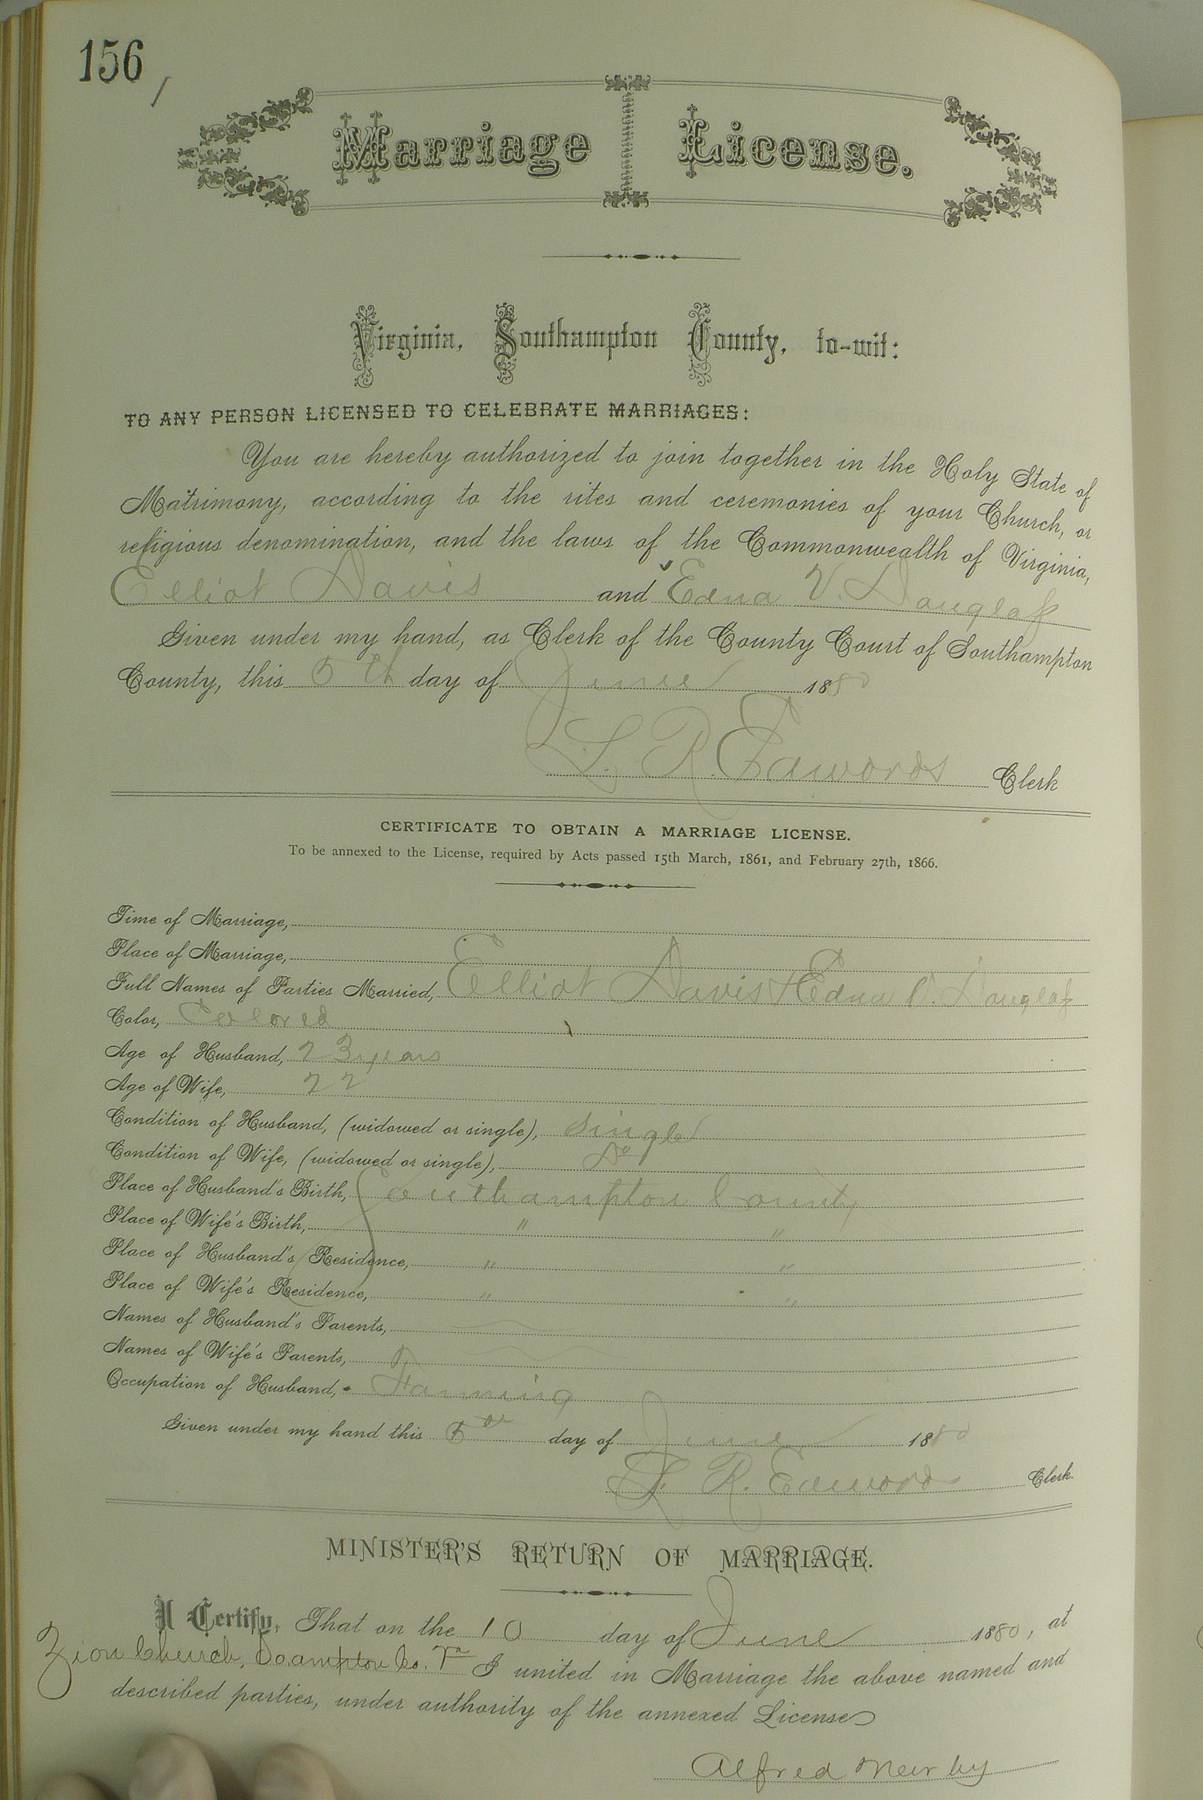 156
Marriage License.
Virginia, Southampton County, to-wit:
TO ANY PERSON LICENSED TO CELEBRATE MARRIAGES:
You are hereby authorized to join together in the Holy State of
Matrimony, according to the rites and ceremonies of your Church, or
religious denomination, and the laws of the Commonwealth of Virginia,
Elliot Davis and Edna V. Douglass
Given under my hand, as Clerk of the County Court of Southampton
County, this 5th day of June 1880
L. R. Edwards Clerk
CERTIFICATE TO OBTAIN A MARRIAGE LICENSE.
To be annexed to the License, required by Acts passed 15th March, 1861, and February 27th, 1866.
Time of Marriage,
Place of Marriage,
Full Names of Parties Married, Elliot Davis & Edna V. Douglass
Color, Colored
Age of Husband, 23 years
Age of Wife, 22
Condition of Husband, (widowed or single), Single
Condition of Wife, (widowed or single), Do
Place of Husband's Birth, Southampton County
Place of Wife's Birth, " "
Place of Husband's Residence, " "
Place of Wife's Residence, " "
Names of Husband's Parents,
Names of Wife's Parents,
Occupation of Husband, Farming
Given under my hand this 5th day of June 1880
L. R. Edwards Clerk.
MINISTER'S RETURN OF MARRIAGE.
I Certify, That on the 10 day of June 1880, at
Zion Church, Soampton Co. Va I united in Marriage the above named and
described parties, under authority of the annexed License
Alfred